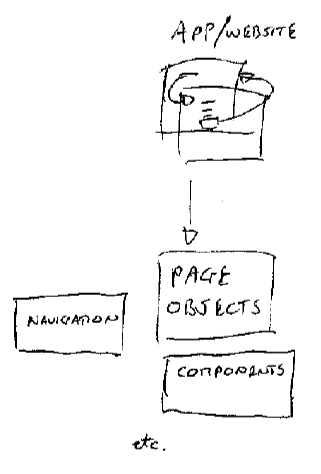 APP/WEBSITE
PAGE
OBJECTS
NAVIGATION
COMPONENTS
etc.